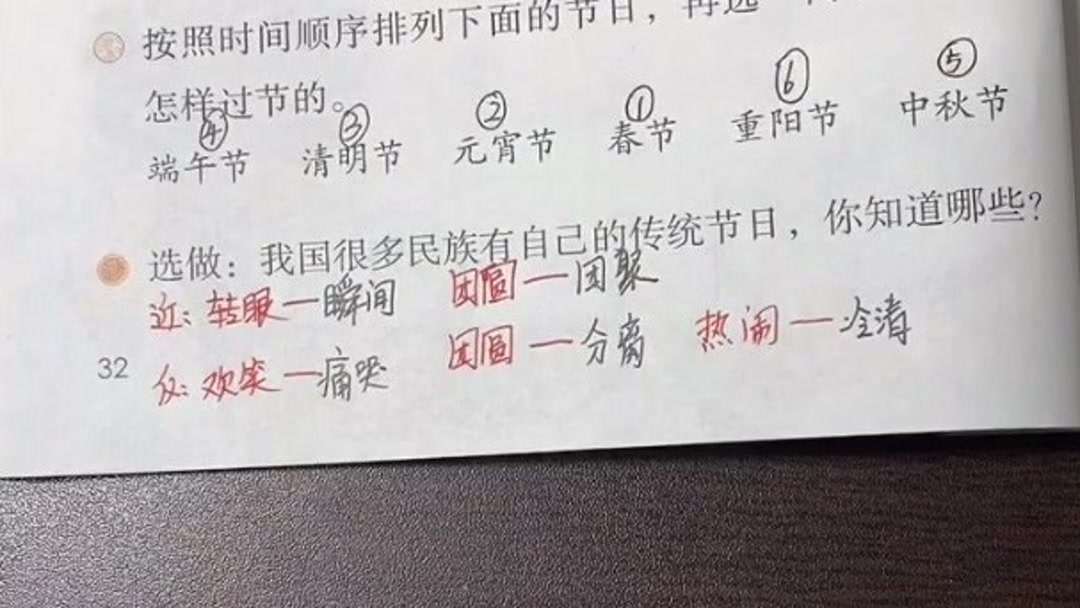 按照时间顺序排列下面的节日，再选
怎样过节的。
④ ③ ② ① ⑥ ⑤
端午节 清明节 元宵节 春节 重阳节 中秋节
选做：我国很多民族有自己的传统节日，你知道哪些？
近：转眼—瞬间 团圆—团聚
32
反：欢笑—痛哭 团圆—分离 热闹—冷清